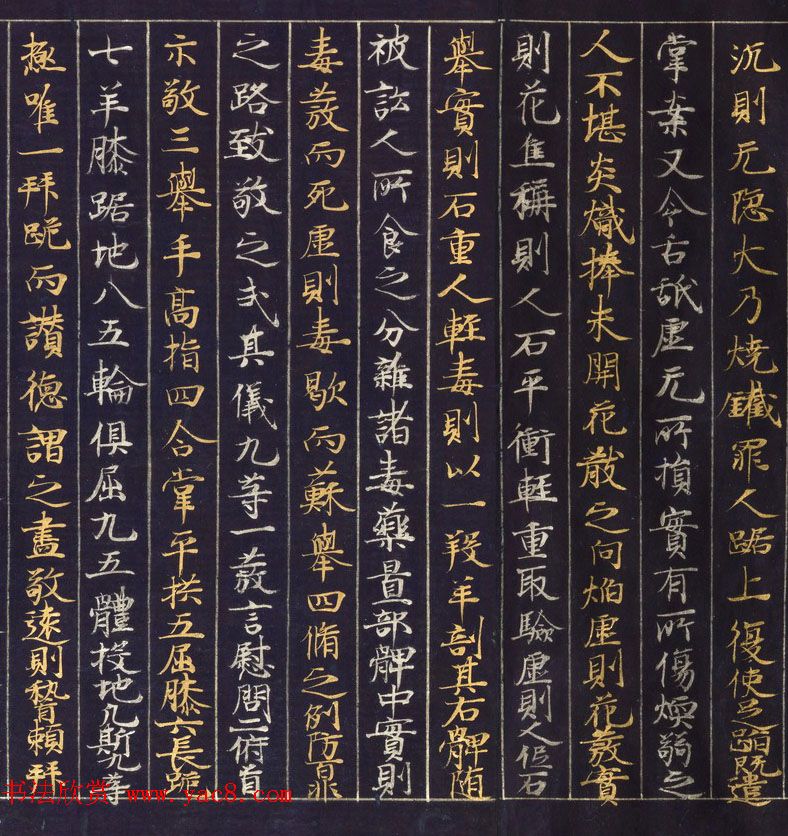 沉則无隐火乃燒鐵罪人踞上復使足蹈既遣
掌案又令舌舐虛无所損實有所傷愞弱之
人不堪炎熾捧未開花散之向焰虛則花發實
則花焦稱則人石平衡軽重取驗虛則人伍石
舉實則石重人軽毒則以一羖羊剖其右髀随
被訟人所食之分雜諸毒藥置部髀中實則
毒發而死虛則毒歇而蘇舉四脩之例防百非
之路致敬之式其儀九等一發言慰問二俯首
示敬三舉手高指四合掌平拱五屈膝六長跪
七羊膝踞地八五輪俱屈九五體投地凡斯九等
極唯一拜跪而讚德謂之盡敬遠則稽顙拜
书法欣赏 www.yac8.com